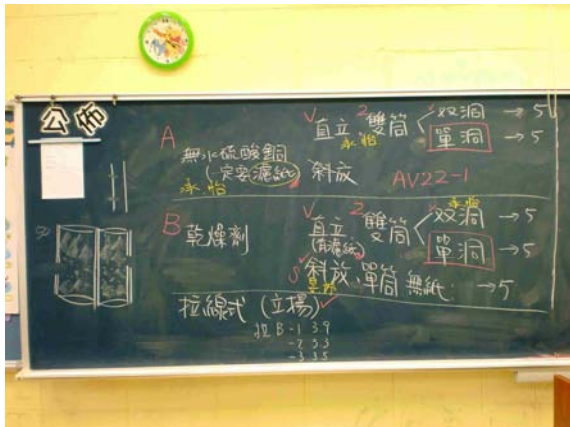 公佈
A
無水硫酸銅
(一定要濾紙)
永怡
直立 雙筒
永怡
双洞 → 5
單洞 → 5
斜放
AV22-1
B 乾燥劑
直立 雙筒
永怡
双洞 → 5
單洞 → 5
斜放、單筒 無紙: → 5
拉線式 (立揚)
拉 B -1 39
-2 53
-3 35